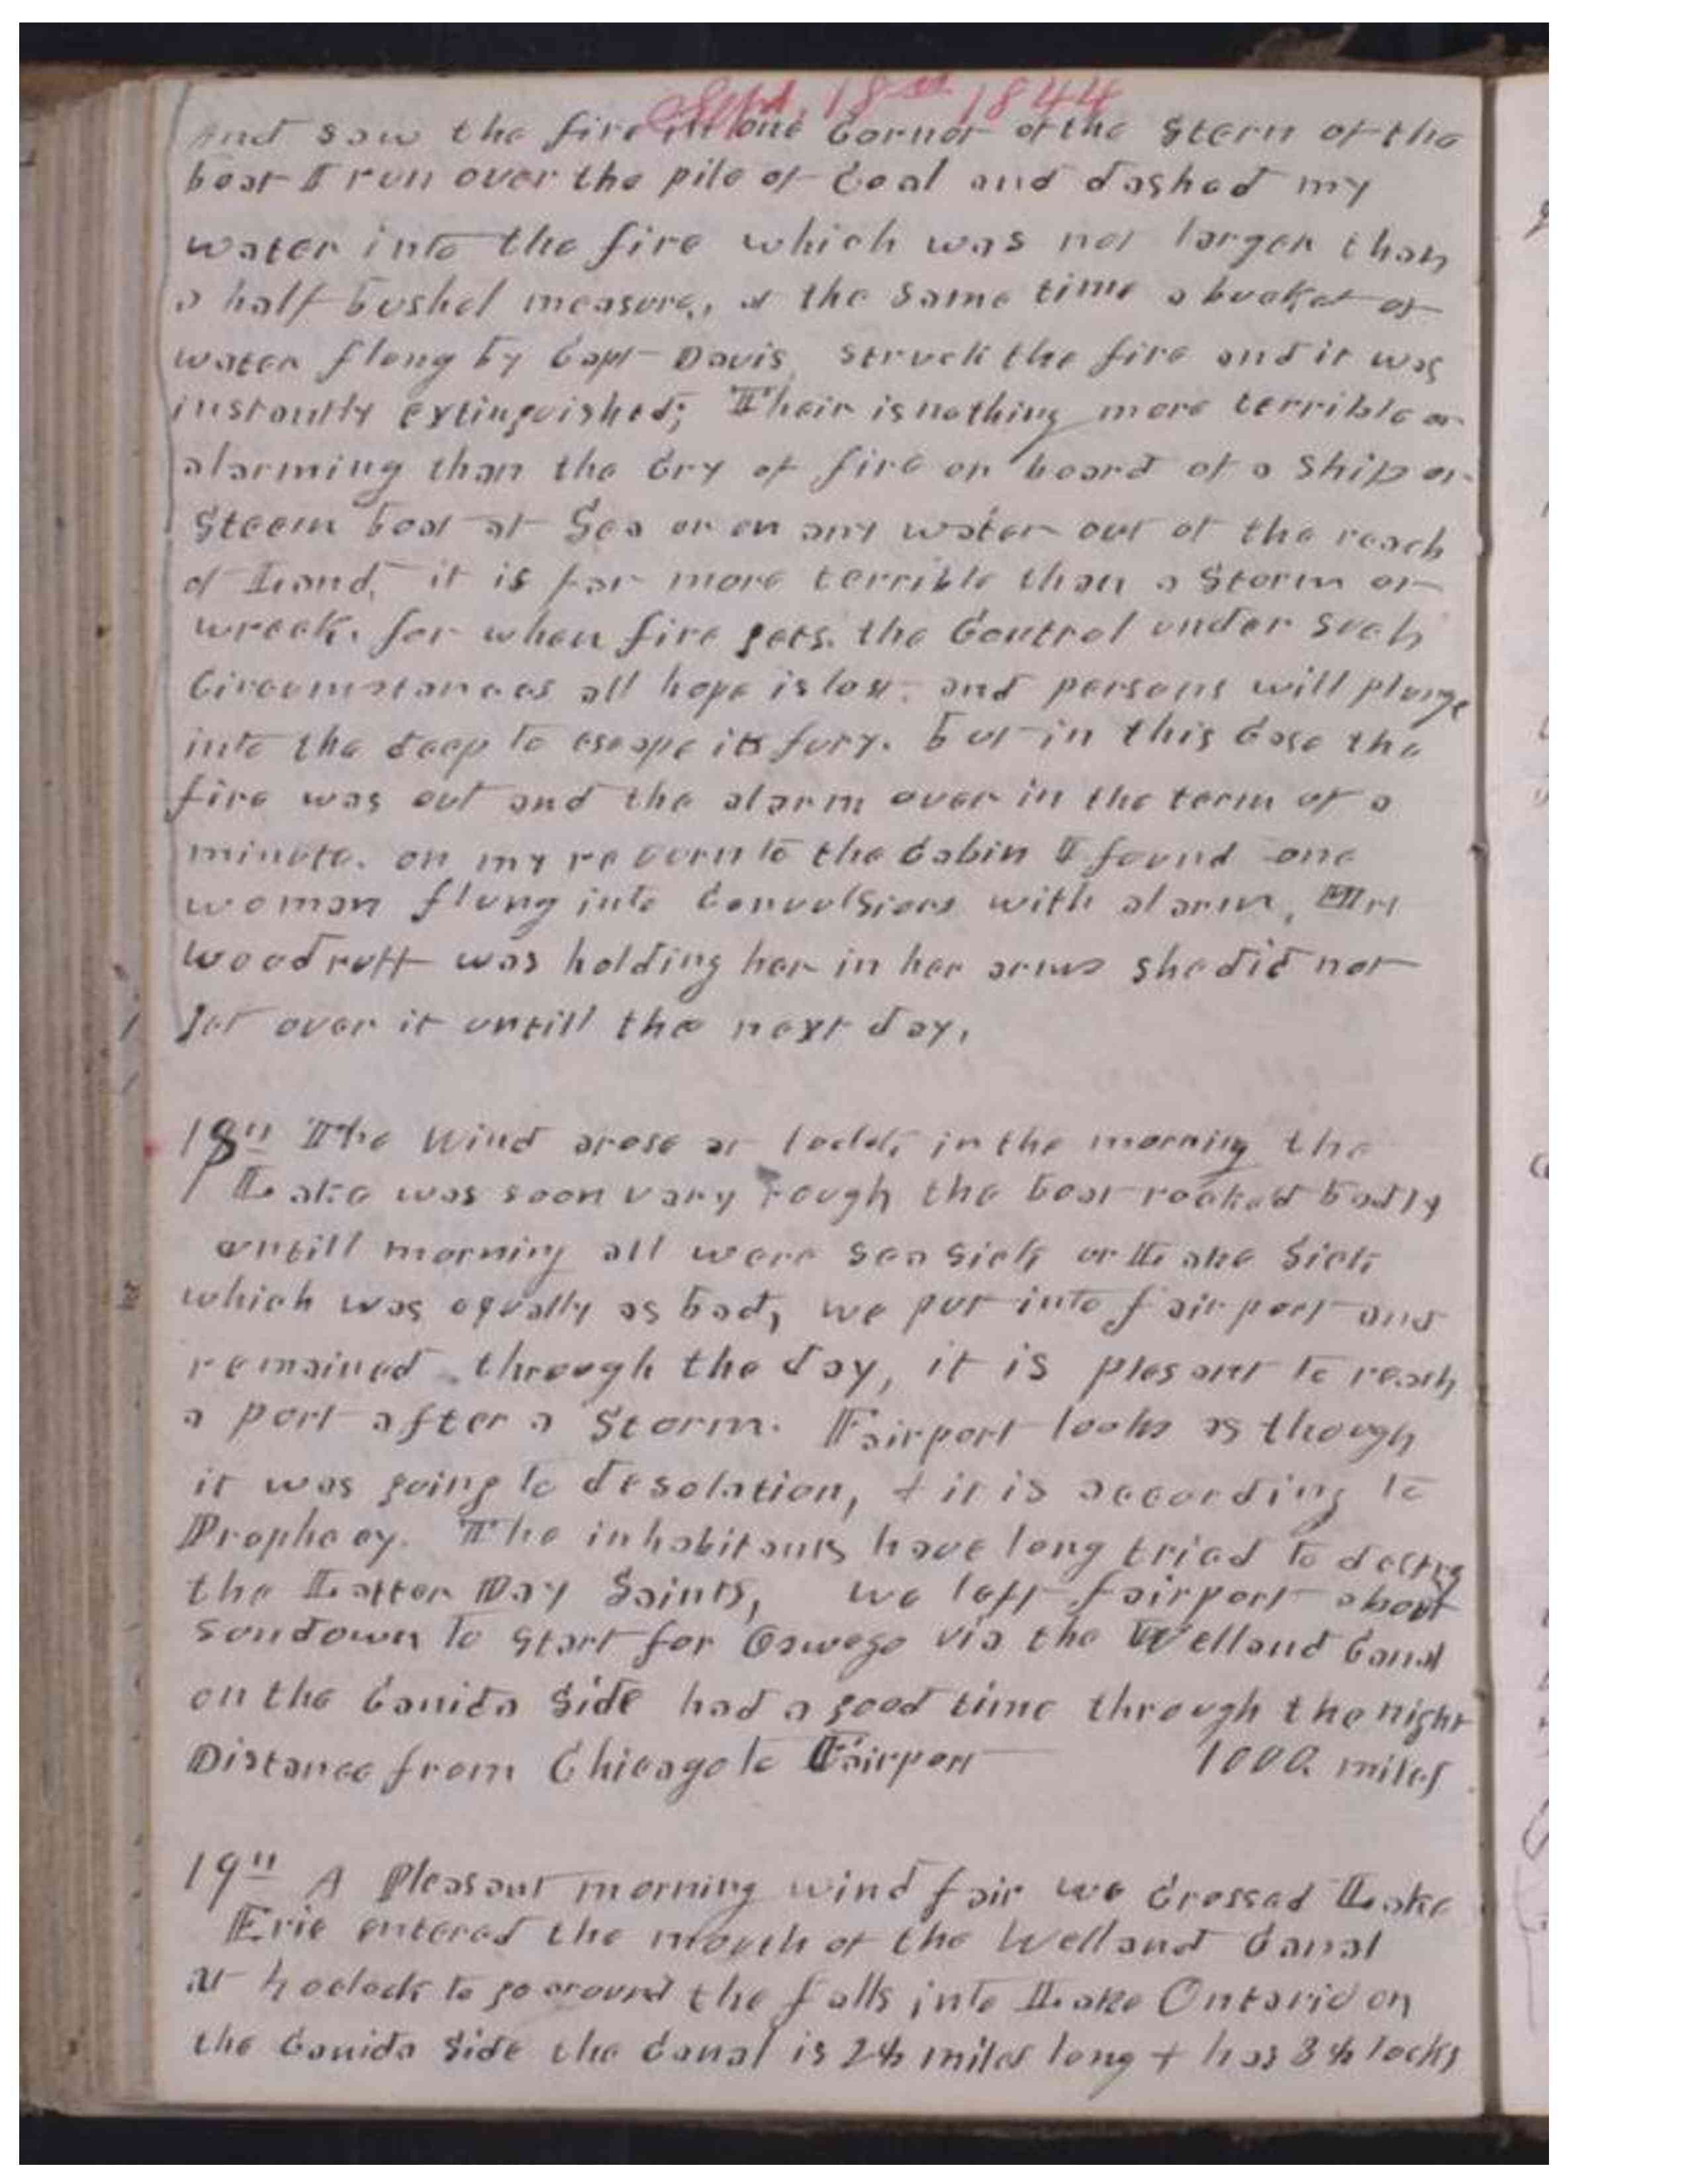 Sept. 18th 1844
And saw the fire in one Corner of the Stern of the
boat I run over the pile of Coal and dashed my
water into the fire which was not larger than
a half bushel measure, at the same time a bucket of
water flung by Capt Davis, struck the fire and it was
instantly extinguished; Their is nothing more terrible or
alarming than the Cry of fire on board of a Ship or
Steem boat at Sea or on any water out of the reach
of Land, it is far more terrible than a Storm or
wreck. for when fire gets the Control under such
Circumstances all hope is lost. and persons will plunge
into the deep to escape its fury. But in this Case the
fire was out and the alarm over in the term of a
minute. on my return to the Cabin I found one
woman flung into Convulsions with alarm, Mrs
Woodruff was holding her in her arms she did not
get over it untill the next day,
18th The Wind arose at 1 oclk, in the morning the
Lake was soon vary rough the boat rocked badly
untill morning all were Sea Sick or Lake Sick
which was equally as bad, we put into fairport and
remained through the day, it is plesant to reach
a port after a Storm. Fairport looks as though
it was going to desolation, + it is according to
Prophecy. The inhabitants have long tried to destroy
the Latter Day Saints, we left fairport about
sundown to start for Oswego via the Welland Canal
on the Canida Side had a good time through the night
Distance from Chicago to Fairport 1000. miles
19th A Pleasant morning wind fair we Crossed Lake
Erie entered the mouth of the Welland Canal
at 4 oclock to go around the falls into Lake Ontario on
the Canida Side the Canal is 24 miles long + has 34 locks